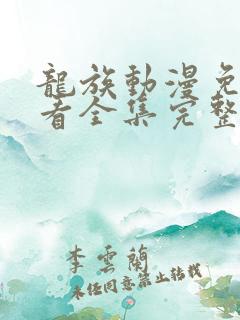 龍族動漫免
看全集完整
李雲蘭
未经同意禁止转载